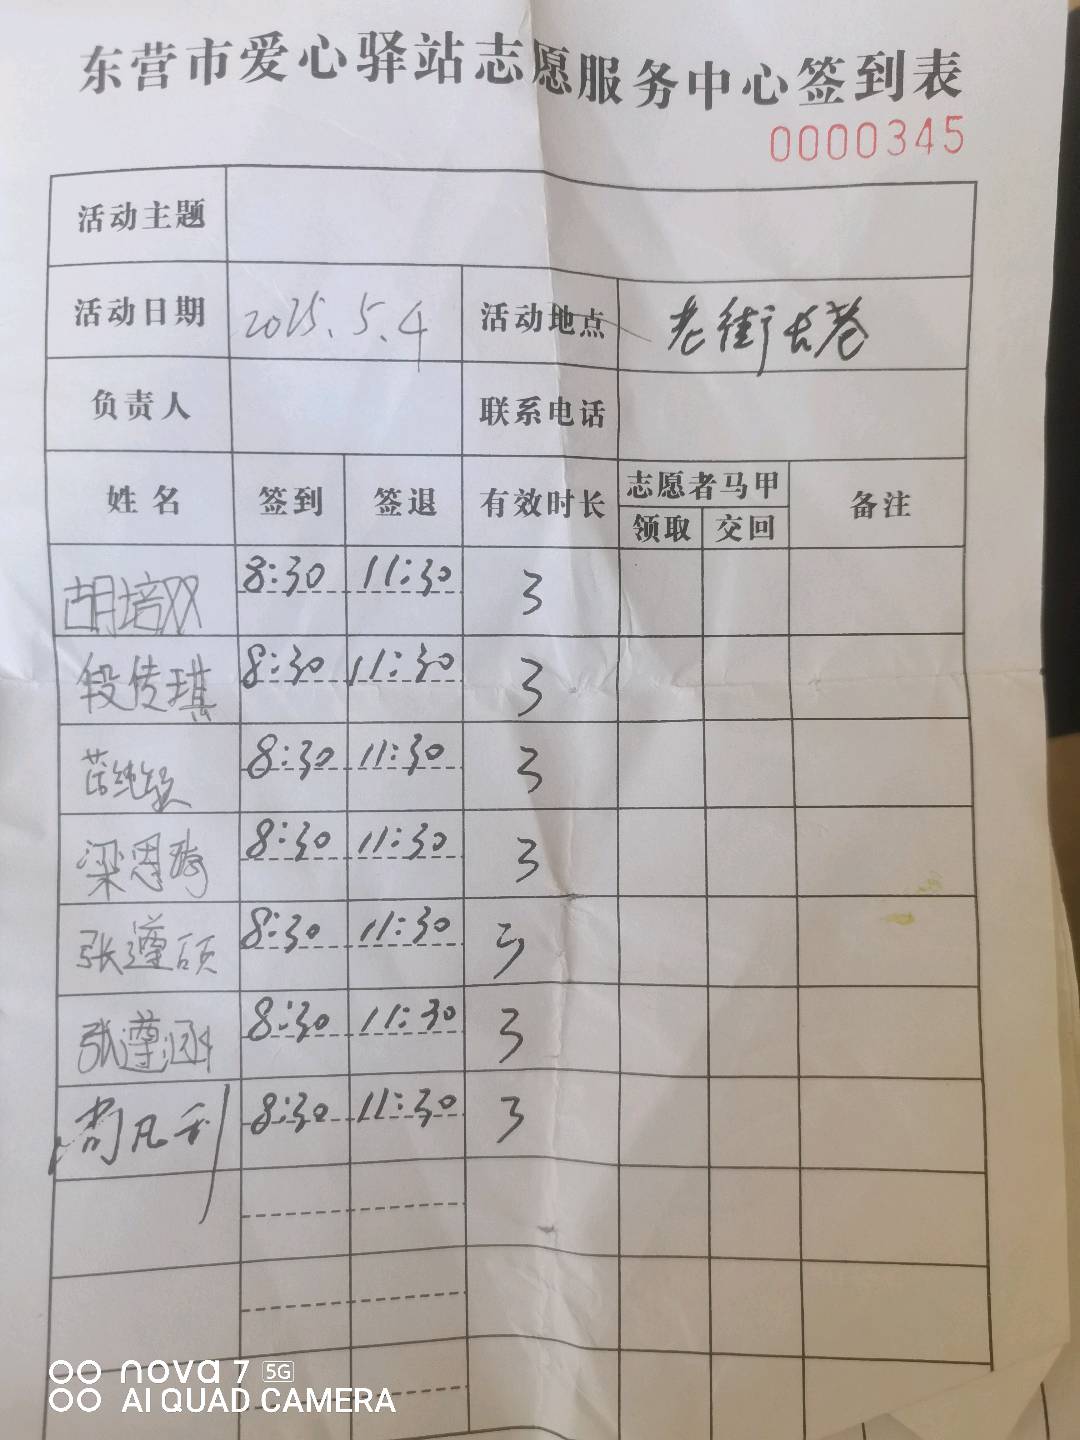 东营市爱心驿站志愿服务中心签到表
0000345
活动主题
活动日期 2025.5.4 活动地点 老街长巷
负责人 联系电话
姓名 签到 签退 有效时长 志愿者马甲 备注
领取 交回
胡培双 8:30 11:30 3
段传琪 8:30 11:30 3
8:30 11:30 3
梁恩琦 8:30 11:30 3
张遵硕 8:30 11:30 3
张遵涵 8:30 11:30 3
尚凡利 8:30 11:30 3
nova 7 5G
AI QUAD CAMERA